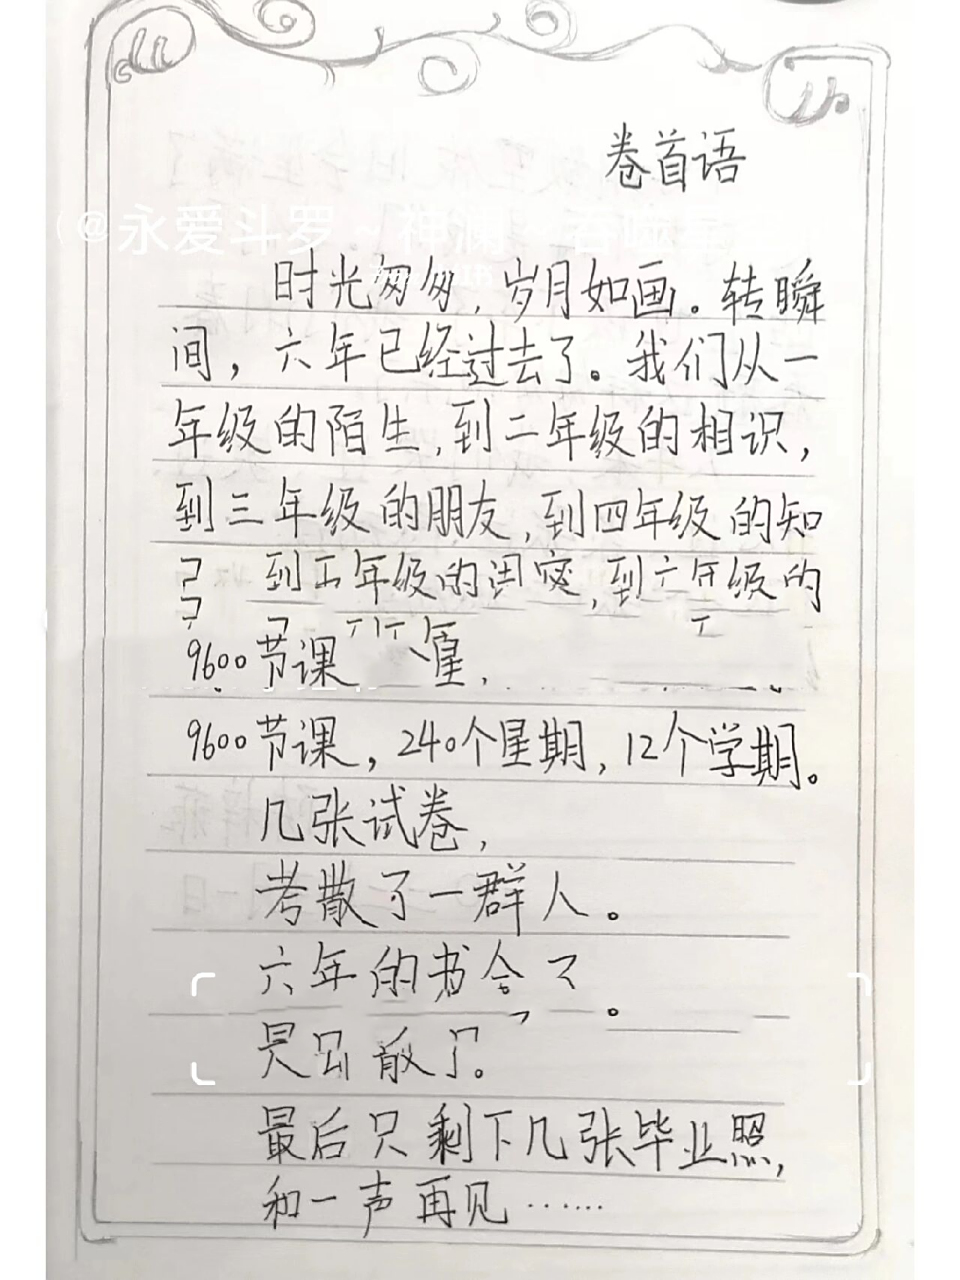 卷首语
@永爱斗罗~神澜~吞噬星
时光匆匆，岁月如画。转瞬
间，六年已经过去了。我们从一
年级的陌生，到二年级的相识，
到三年级的朋友，到四年级的知
到五年级的 到六年级的
9600节课
9600节课，240个星期，12个学期。
几张试卷，
考散了一群人。
六年的书
最后只剩下几张毕业照，
和一声再见……